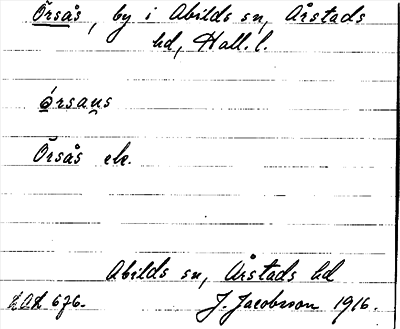 Örsås, by i Abilds sn, Årstads
hd, Hall. l.
órsaʋs
Örsås ek.
Abilds sn, Årstads hd
676. J. Jacobsson 1916.